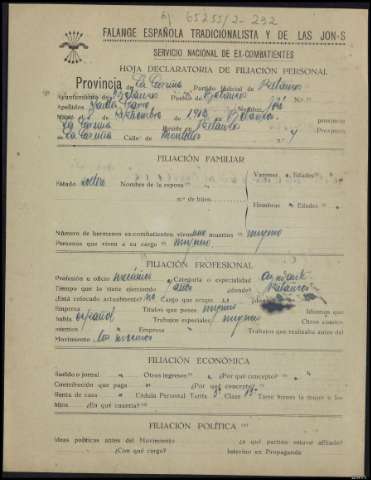 65253/2-292
FALANGE ESPAÑOLA TRADICIONALISTA Y DE LAS JON-S
SERVICIO NACIONAL DE EX-COMBATIENTES
HOJA DECLARATORIA DE FILIACIÓN PERSONAL
Provincia de La Coruña Partido Judicial de Betanzos
Ayuntamiento de Betanzos Pueblo de Betanzos N.º
Apellidos Nombre José
de 1913 Betanzos Provincia
La Coruña Reside en Betanzos Provincia
La Coruña Calle de n.º 4
FILIACIÓN FAMILIAR
Varones Edades
Estado soltero Nombres de la esposa
n.º de hijos
Hembras Edades
Número de hermanos ex-combatientes vivos uno muertos ninguno
Personas que viven a su cargo ninguno
FILIACIÓN PROFESIONAL
Profesión u oficio mecánico Categoría o especialidad ayudante
Tiempo que la viene ejerciendo años ¿dónde? Betanzos
¿Está colocado actualmente? no Cargo que ocupa
Empresa Títulos que posee ninguno Idiomas que
habla español Trabajos especiales ninguno Otros conoci-
mientos Empresa Trabajos que realizaba antes del
Movimiento los mismos
FILIACIÓN ECONÓMICA
Sueldo o jornal Otros ingresos ¿Por qué concepto?
Contribución que paga ¿Por qué concepto?
Renta de casa Cédula Personal Tarifa Clase Tiene bienes la mujer o los
hijos ¿En qué cuantía?
FILIACIÓN POLÍTICA
Ideas políticas antes del Movimiento ¿a qué partido estuvo afiliado?
¿Con qué cargo? Intervino en Propaganda